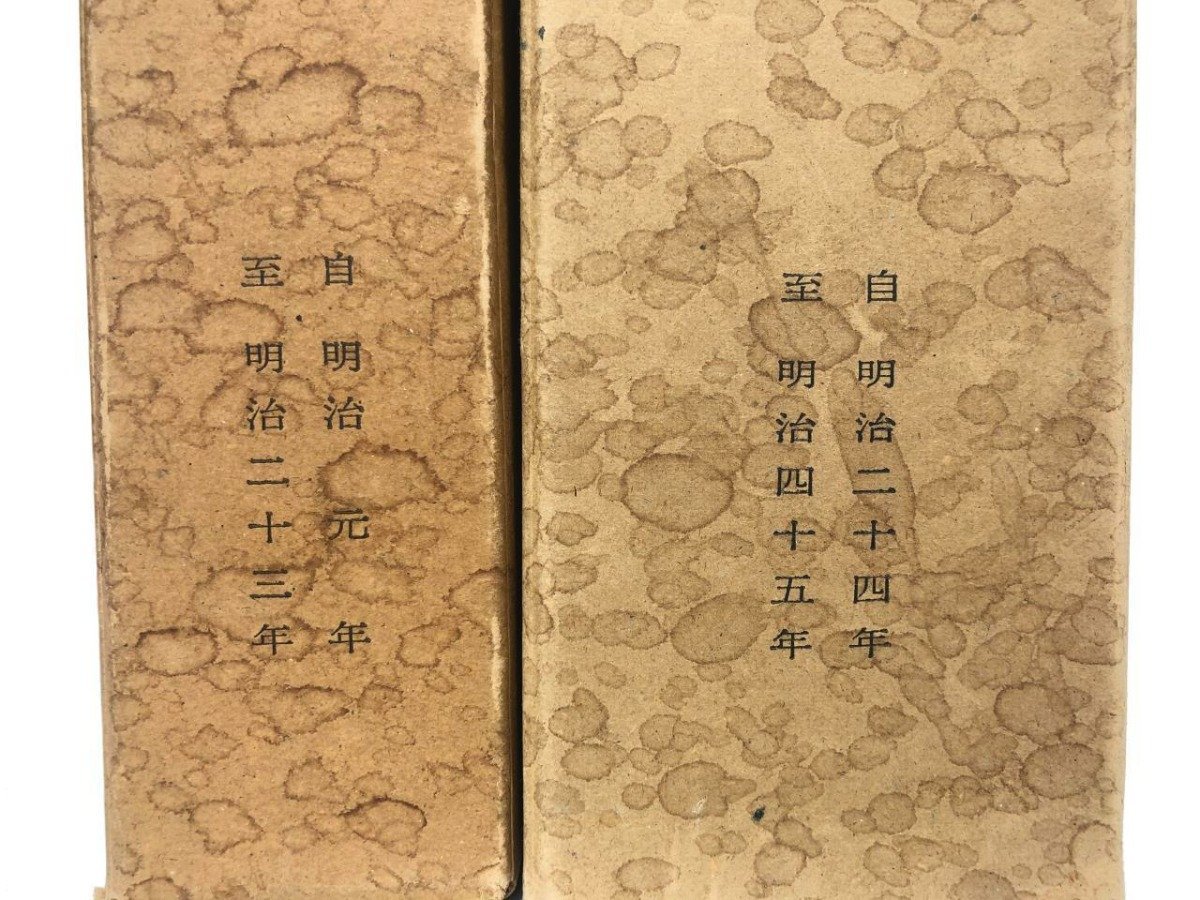 自明治元年
至明治二十三年
自明治二十四年
至明治四十五年